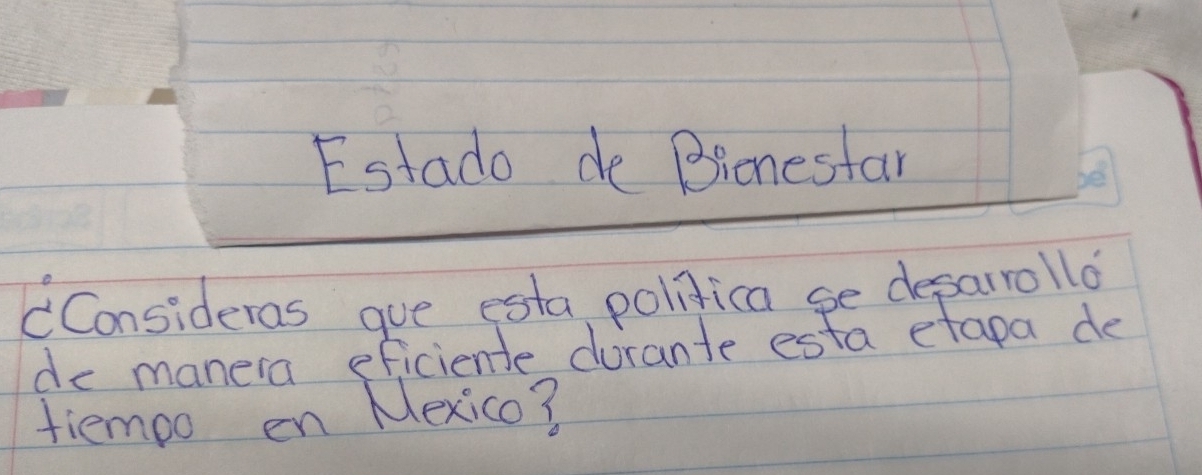 Estado de Bienestar
¿Consideras que esta política se desarrolló
de manera eficiente durante esta etapa de
tiempo en Mexico?